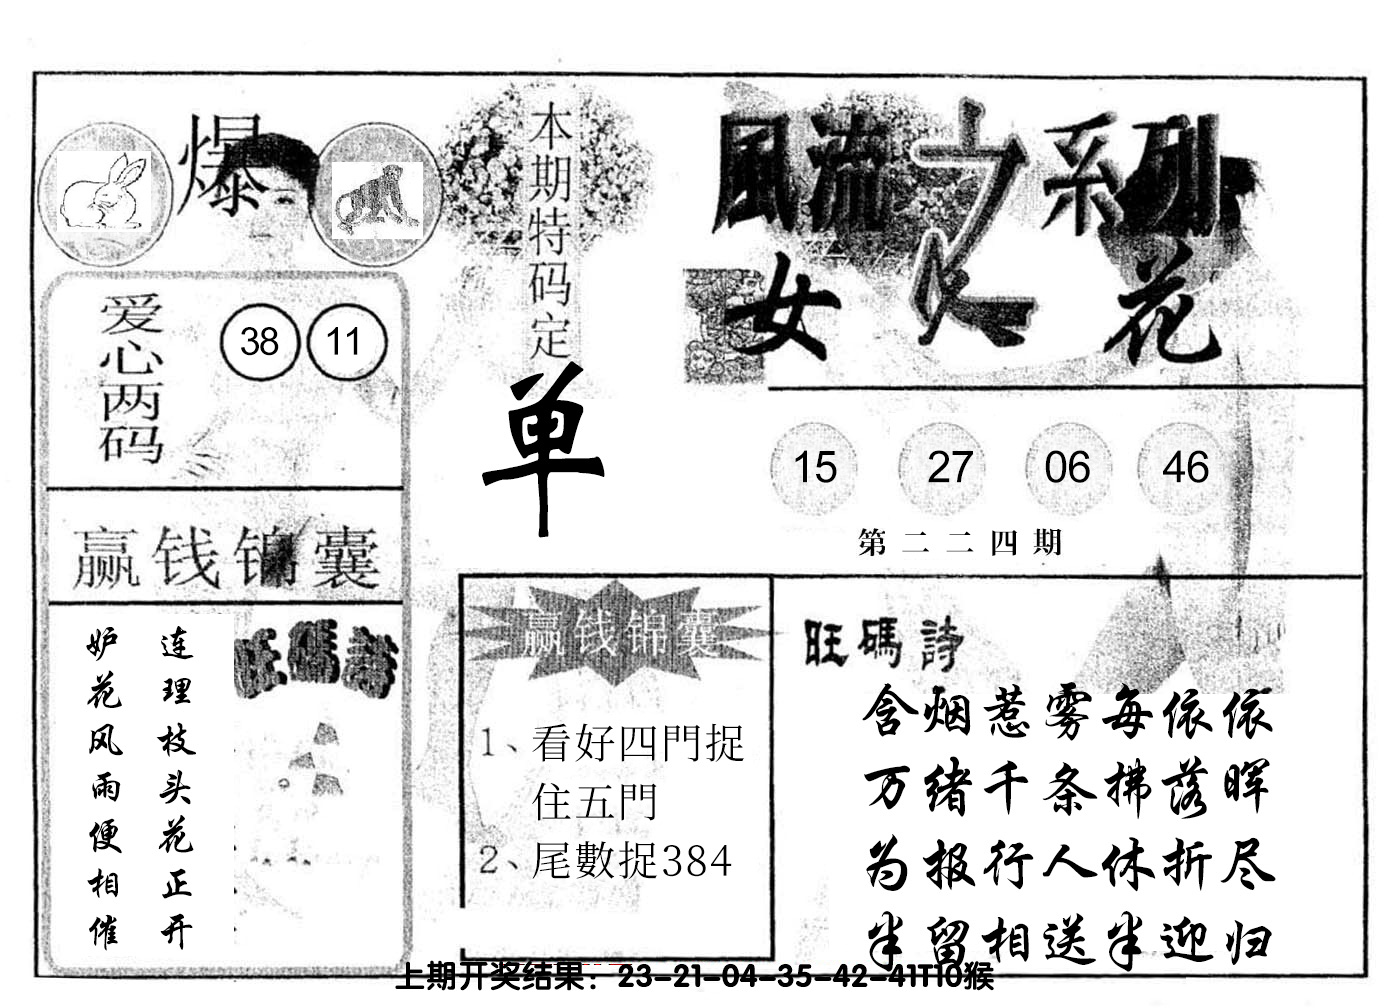 爆
本期特码定
单
風流之系列
女人花
爱心两码
38 11
15 27 06 46
第二二四期
赢钱锦囊
连理枝头花正开
妒花风雨便相催
旺碼詩
赢钱锦囊
1、看好四門捉
住五門
2、尾數捉384
旺碼詩
含烟惹雾每依依
万绪千条拂落晖
为报行人休折尽
半留相送半迎归
上期开奖结果：23-21-04-35-42-41T10猴